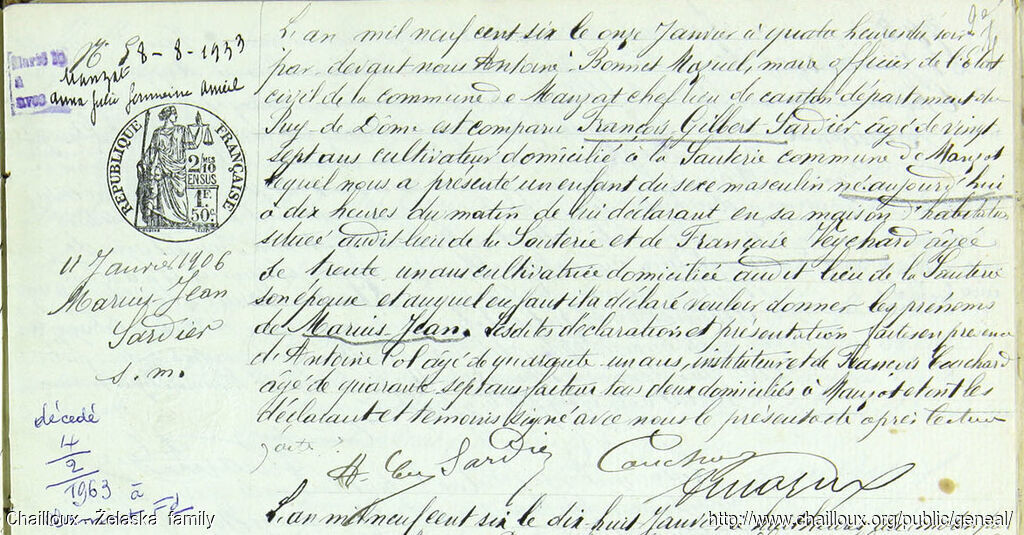 8-8-1933
Manzat
Anna Julie Germaine Amiel
Marié
à
avec
RÉPUBLIQUE FRANÇAISE
2/10 MES
EN SUS
1 F.
50 c.
11 Janvier 1906
Marius Jean
Sardier
s. m.
décédé
4
2
1963 à
L'an mil neuf cent six le onze Janvier à quatre heures du soir
par-devant nous Antoine Bonnet Mazuel, maire officier de l'Etat
civil de la commune de Manzat chef lieu de canton département du
Puy-de Dôme est comparu François Gilbert Sardier âgé de vingt
sept ans cultivateur domicilié à la Sauterie commune de Manzat
lequel nous a présenté un enfant du sexe masculin né aujourd'hui
à dix heures du matin de lui déclarant en sa maison d'habitation
située audit lieu de la Sauterie et de Française Veychard âgée
de trente un ans cultivatrice domiciliée audit lieu de la Sauterie
son épouse et auquel enfant il a déclaré vouloir donner les prénoms
de Marius Jean. Lesdites déclaration et présentation faites en présence
de Antoine âgé de quarante un ans, instituteur et de François Couchard
âgé de quarante sept ans facteur tous deux domiciliés à Manzat et ont les
déclarant et témoins signé avec nous le présent acte après lecture
faite
Sardier
L'an mil neuf cent six le dix-huit Janvier
Chailloux - Żelaska family
http://www.chailloux.org/public/geneal/